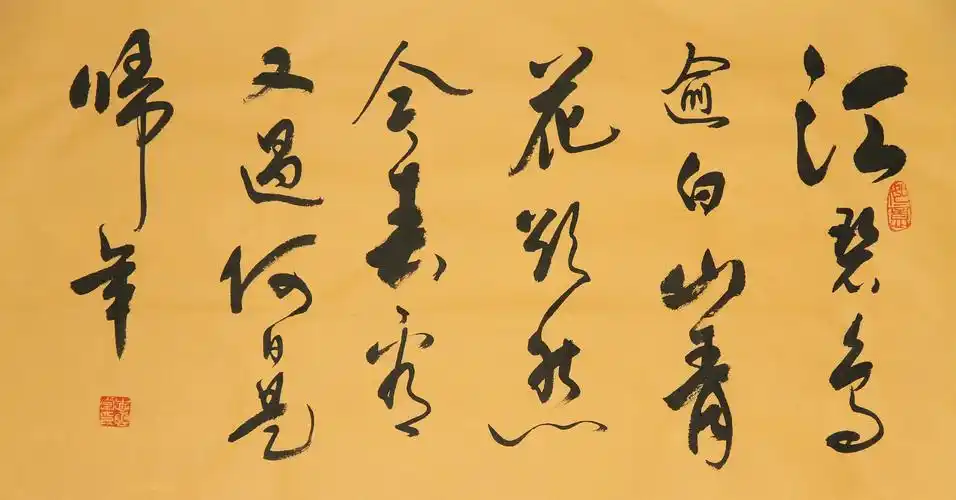 江碧鳥
逾白山青
花欲然
今春看
又過何日是
帰年